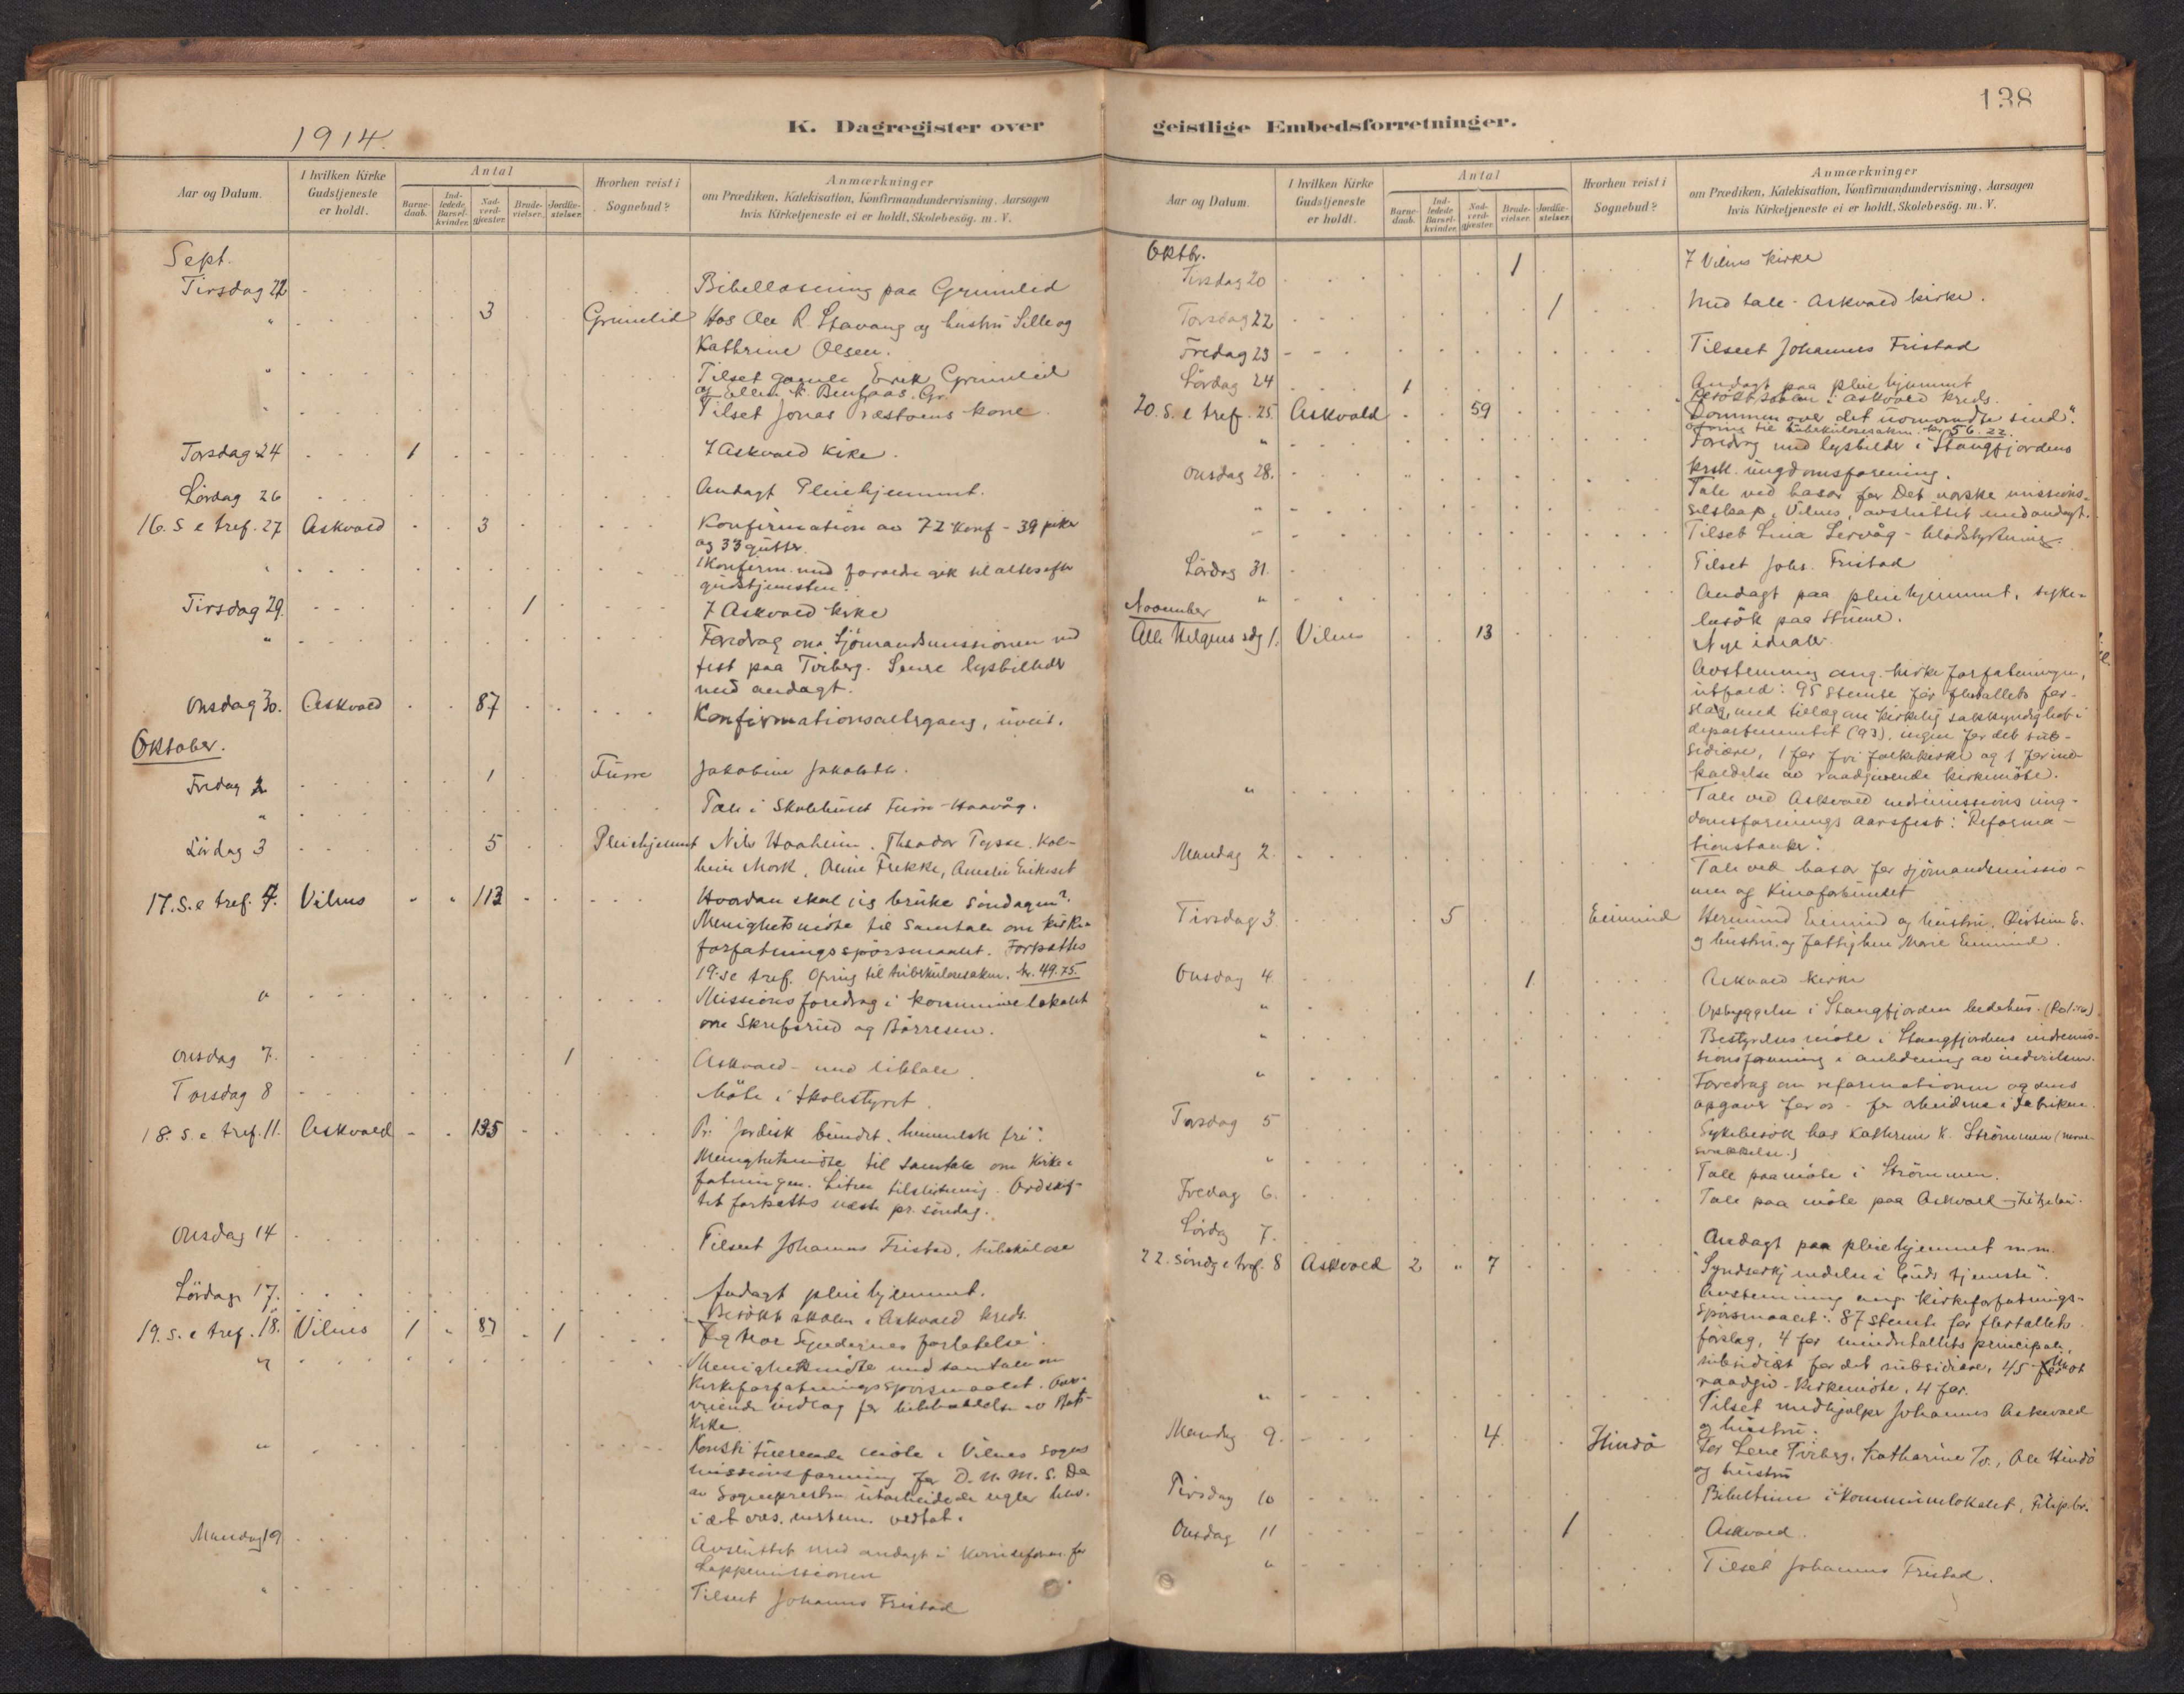 138
1914.
K. Dagregister over
geistlige Embedsforretninger.
Aar og Datum.
I hvilken Kirke Gudstjeneste er holdt.
Antal
Barne-daab.
Ind-ledede Barsel-kvinder.
Nad-verd-gjæster.
Brude-vielser.
Jordfæ-stelser.
Hvorhen reist i Sognebud?
Anmærkninger
om Prædiken, Katekisation, Konfirmandundervisning, Aarsagen
hvis Kirketjeneste ei er holdt, Skolebesög. m. V.
Sept.
Tirsdag 22 Bibellæsning paa Grimelid
" 3 Grimelid Hos Ole R. Stavang og hustru Sille og
Kathrine Olsen.
" Tilset gamle Erik Grimelid
" Tilset Jonas kone.
Torsdag 24 1 I Askvold kirke.
Lördag 26 Andagt Pleiehjemmet.
16. S e tref. 27 Askvold 3 Konfirmation av 72 Konf - 39 piker
og 33 gutter.
" Konfirm. med foreldre gik til alters efter
gudstjenesten.
Tirsdag 29. 1 I Askvold kirke
" Foredrag om Sjömandsmissionen ved
fest paa Tviberg. Senere lysbilleder
med andagt.
Onsdag 30. Askvold 87 Konfirmationsaltergang, uveir.
Oktober.
Fredag 2 1 Furre Jakobine Jakobsdtr.
" Tale i Skolehuset Furre-Haavåg.
Lördag 3 5 Pleiehjemmet Nils Haaheim. Theodor Tysse. Kol-
bein Mork, Oline Frekke, Amalie Eikeset
17. S. e tref. 4. Vilnes " " 113 Hvordan skal jeg bruke söndagen?
Menighetsmöte til samtale om kirke-
forfatningsspörsmaalet. Fortsættes
19. S e tref. Ofring til tuberkulosesaken. kr. 49.75.
" Missionsforedrag i kommunelokalet
om Skrefsrud og Börresen.
Onsdag 7. 1 Askvold - med liktale.
Torsdag 8 Möte i skolestyret.
18. S. e tref. 11. Askvold 135 Pr. "Jordisk bundet, himmelsk fri".
Menighetsmöte til samtale om Kirke-
fatningen. Liten tilslutning. Ordskif-
tet fortsættes næste pr. söndag.
Onsdag 14 Tilseet Johannes Fristad, tuberkulose
Lördag 17. Andagt pleiehjemmet.
Besökt skolen i Askvold kreds.
19. S. e tref. 18. Vilnes 1 " 87 1 "Jeg tror Syndernes forlatelse".
" Menighetsmöte med samtale om
Kirkeforfatningsspörsmaalet. Over-
veiende indlæg for bibeholdelse av Stats-
kirke.
" Konstituerende möte i Vilnes sogns
missionsforening for D. N. M. S. De
av Sogneprestens utarbeidede regler blev
i det væs. enstem. vedtat.
Mandag 19 Avsluttet med andagt i kvindeforen. for
Lappemissionen
" Tilseet Johannes Fristad
Oktbr.
Tirsdag 20 1 I Vilnes kirke
Torsdag 22 1 Med tale - Askvold kirke.
Fredag 23 Tilseet Johannes Fristad
Lördag 24 1 Andagt paa pleiehjemmet
Besökt skolen i Askvold kreds.
20. S. e tref. 25 Askvold 59 "Dommen over det uomvendte sind".
Ofring til tuberkulosesaken. kr. 56.22.
" Foredrag med lysbilder i Stangfjordens
kristl. ungdomsforening.
Onsdag 28. Tale ved basar for Det norske missions-
selskap, Vilnes, avsluttet med andagt.
" Tilset Lina Lervåg - blodstyrtning.
" Tilset Johs. Fristad
Lördag 31. Andagt paa pleiehjemmet, syke-
" besök paa
November
Alle Helgens sdg 1. Vilnes 13 Nye idealer.
Avstemning ang. kirkeforfatningen,
utfald: 95 stemte for flertallets for-
slag, med tillæg om kirkelig sakkyndighet i
departementet (93), ingen for det sub-
sidiære, 1 for fri folkekirke og 1 for ind-
kaldelse av raadgivende kirkemöte.
" Tale ved Askvold indremissions ung-
domsforenings aarsfest: "Reforma-
tionstanker".
Mandag 2. Tale ved basar for sjömandsmissio-
nen og Kinaforbundet
Tirsdag 3. 5 Eimind Hermund Eimind og hustru, Öistein E.
og hustru, og fattiglem Marie Eimind.
Onsdag 4. 1 Askvold kirke
" Opbyggelse i Stangfjordens bedehus.
" Bestyrelsesmöte i Stangfjordens indremis-
sionsforening i anledning av indvielsen.
" Foredrag om reformationen og dens
opgaver for os - for arbeiderne i fabriken.
Torsdag 5 Sykebesök hos Kathrine K. Strömmen (nerve-
svækkelse.)
" Tale paa möte i Strömmen.
Fredag 6. Tale paa möte paa Askvold
Lördag 7. Andagt paa pleiehjemmet m.m.
22. Söndg e tref. 8 Askvold 2 " 7 "Syndserkjendelse i Guds tjeneste".
Avstemning ang. kirkeforfatnings-
spörsmaalet: 87 stemte for flertallets
forslag, 4 for mindretallets principale,
subsidiært for det subsidiære, 45 mot
raadgiv. kirkemöte, 4 for.
" Tilset medhjelper Johannes Askvold
og hustru.
Mandag 9. 4 Hindö For Lene Tviberg, Katharine Tv., Ole Hindö
og hustru
Tirsdag 10 Bibeltime i kommunelokalet, Filipbr.
Onsdag 11 1 Askvold.
" Tilset Johannes Fristad.